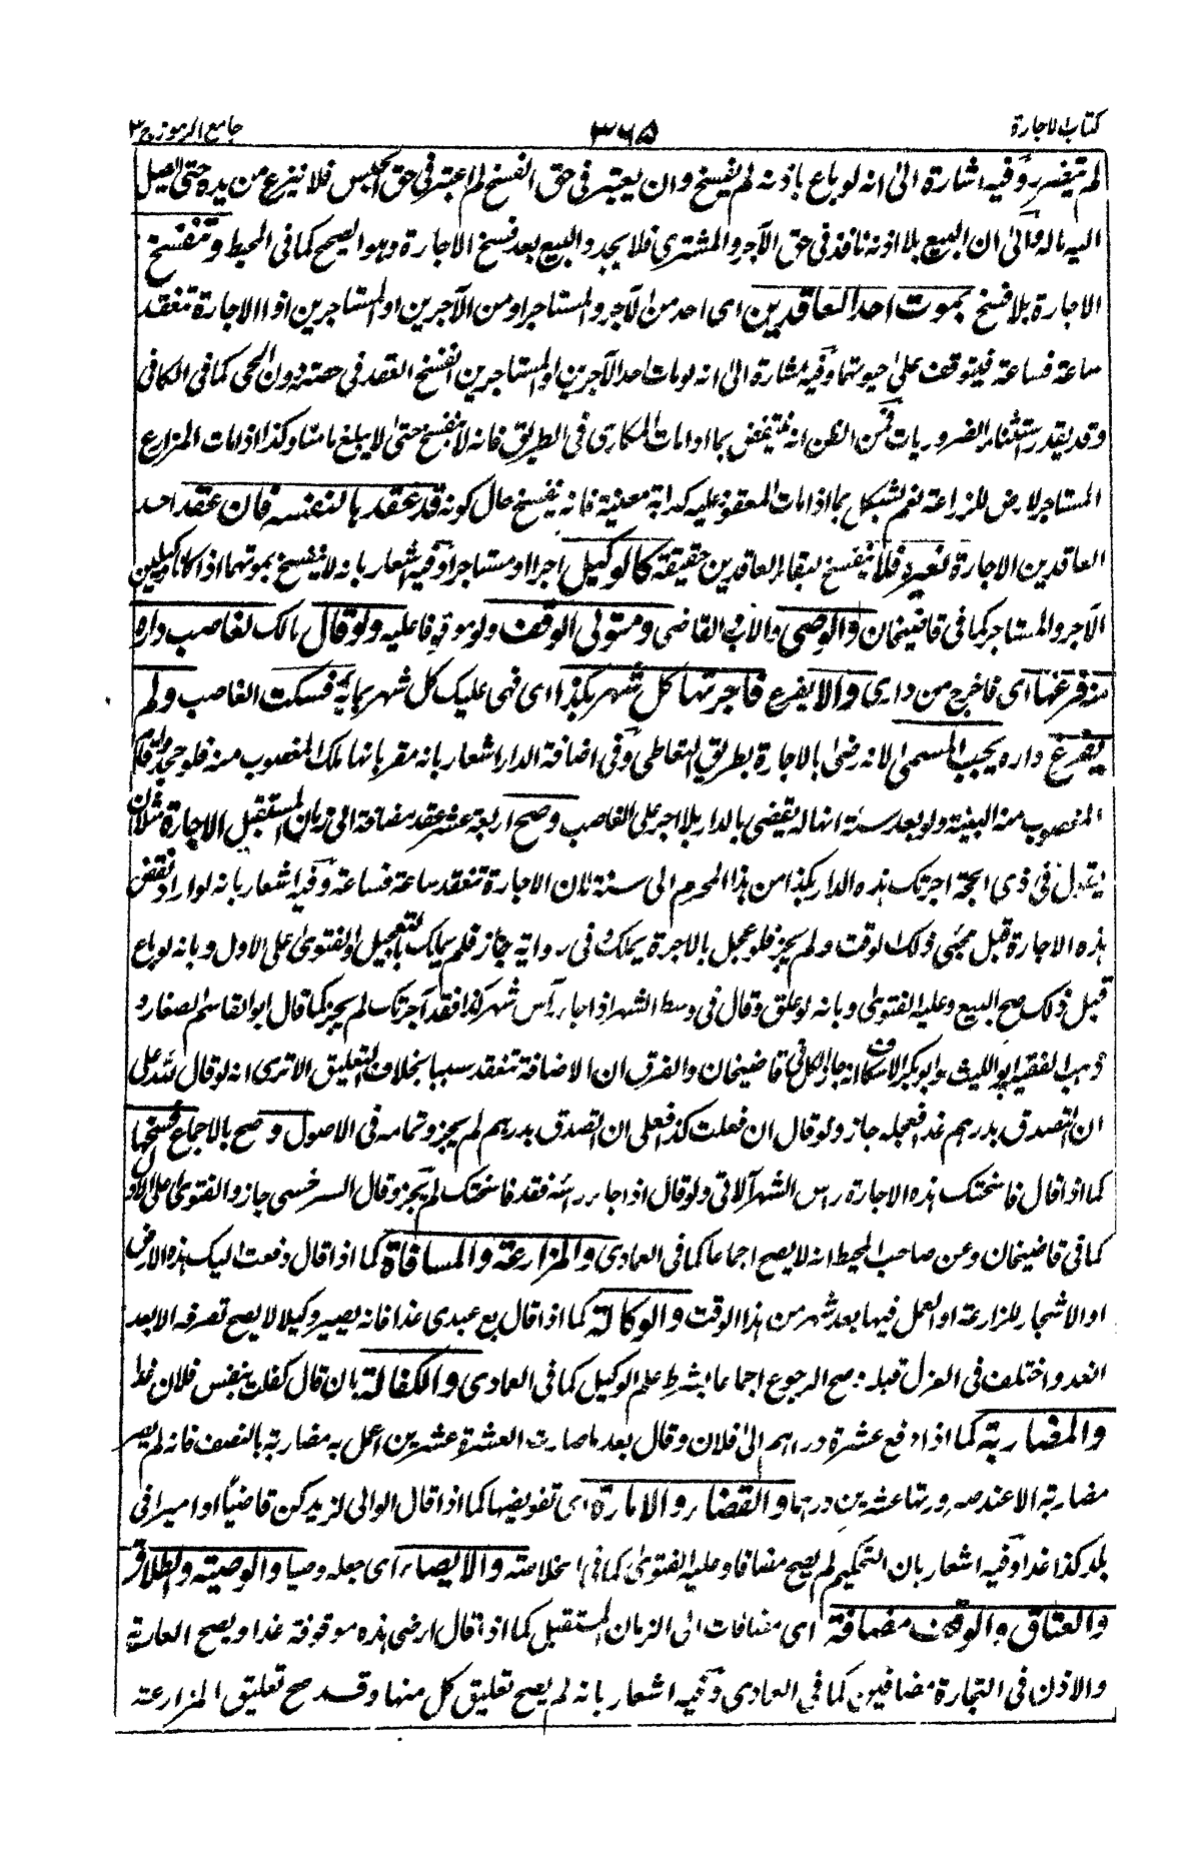 كتاب الاجارة
٣٦٥
جامع الرموز ج ٣
لم يتضرر وفيه اشارة الى انه لو باع باذنه لم يفسخ وان يعتبر في حق الفسخ لم يعتبر في حق الحبس فلا ينزع من يده حتى يصل
اليه ماله والى ان البيع بلا اذنه نافذ في حق الآجر والمشتري فلا يجدد البيع بعد فسخ الاجارة وهو الصحيح كما في المحيط وتنفسخ
الاجارة بلا فسخ بموت احد العاقدين اى احد من الآجر والمستاجر او من الآجرين او المستاجرين اذ الاجارة تنعقد
ساعة فساعة فيتوقف على حيوتهما وفيه اشارة الى انه لو مات احد الآجرين او المستاجرين انفسخ العقد في حصته دون الحى كما في الكافي
وقد يقدر استثناء الضروريات فمن الظن انه منتقض بما اذا مات المكارى في الطريق فانه لا ينفسخ حتى لا يبلغ مامنا وكذا اذا مات المزارع
المستاجر لارض للزراعة نعم يشكل بما اذا مات المعقود عليه كدابة معينة فانه ينفسخ حال كونه قد عقد بها لنفسه فان عقد احد
العاقدين الاجارة لغيره فلا ينفسخ لبقاء العاقدين حقيقة كالوكيل آجرا او مستاجرا وفيه اشعار بانه لا ينفسخ بموتهما اذا كانا وكيلين
الآجر والمستاجر كما في قاضيخان والوصى والاب والقاضى ومتولى الوقف ولو موقوفا عليه ولو قال مالك لغاصب داره
فرغها اى فاخرج من دارى والا يفرغ فاجرتها كل شهر بكذا اى فهى عليك كل شهر بمائة فسكت الغاصب ولم
يفرغ داره يجب المسمى لانه رضى بالاجارة بطريق التعاطى وفي اضافة الدار اشعار بانه مقر بانها ملك المغصوب منه فلو جحد واقام
المغصوب منه البينة ولو بعد سنة انها له يقضى بالدار بلا اجر على الغاصب وصح اربعة عشر عقد مضافة الى زمان المستقبل الاجارة مثلا ان
يقول في ذى الحجة اجرتك هذه الدار بكذا من هذا المحرم الى سنة لان الاجارة تنعقد ساعة فساعة وفيه اشعار بانه لو اراد نقض
هذه الاجارة قبل مجئى ذلك الوقت ولم يجز فلو عجل بالاجرة يملك وفي رواية جاز فلم يملك بالتعجيل والفتوى على الاول وبانه لو باع
قبل ذلك صح البيع وعليه الفتوى وبانه لو علق وقال في وسط الشهر اذا جاء رأس شهر كذا فقد آجرتك لم يجز كما قال ابو القاسم الصفار و
ذهب الفقيه ابو الليث وابو بكر الاسكاف انه جاز الكل في قاضيخان والفرق ان الاضافة تنعقد سببا بخلاف التعليق الاترى انه لو قال لله على
ان اتصدق بدرهم غدا فعجله جاز ولو قال ان فعلت كذا فعلى ان اتصدق بدرهم لم يجز وتمامه في الاصول وصح بالاجماع فسخها
كما اذا قال فاسختك هذه الاجارة رأس الشهر الآتى ولو قال اذا جاء رأسه فقد فاسختك لم يجز وقال السرخسى جاز والفتوى على الاول
كما في قاضيخان وعن صاحب المحيط انه لا يصح اجماعا كما في العمادى والمزارعة والمساقاة كما اذا قال دفعت اليك هذه الارض
او الاشجار للزراعة او العمل فيها بعد شهر من هذا الوقت والوكالة كما اذا قال بع عبدى غدا فانه يصير وكيلا لا يصح تصرفه الا بعد
الغد واختلف في العزل قبله وصح الرجوع اجماعا بشرط علم الوكيل كما في العمادى والكفالة بان قال كفلت بنفس فلان غدا
والمضاربة كما اذا دفع عشرة دراهم الى فلان وقال بعد ما صارت العشرة عشرين اعمل به مضاربة بالنصف فانه لم يصر
مضاربة الا عند صيرورتها عشرين درهما والقضاء والامارة اى تفويضها كما اذا قال الوالى لزيد كن قاضيًا او اميرا في
بلد كذا غدا وفيه اشعار بان التحكيم لم يصح مضافا وعليه الفتوى كما في الخلاصة والايصاء اى جعله وصيا والوصية والطلاق
والعتاق والوقف مضافة اى مضافات الى الزمان المستقبل كما اذا قال ارضى هذه موقوفة غدا ويصح العارية
والاذن في التجارة مضافين كما في العمادى وفيه اشعار بانه لم يصح تعليق كل منها وقد صح تعليق المزارعة